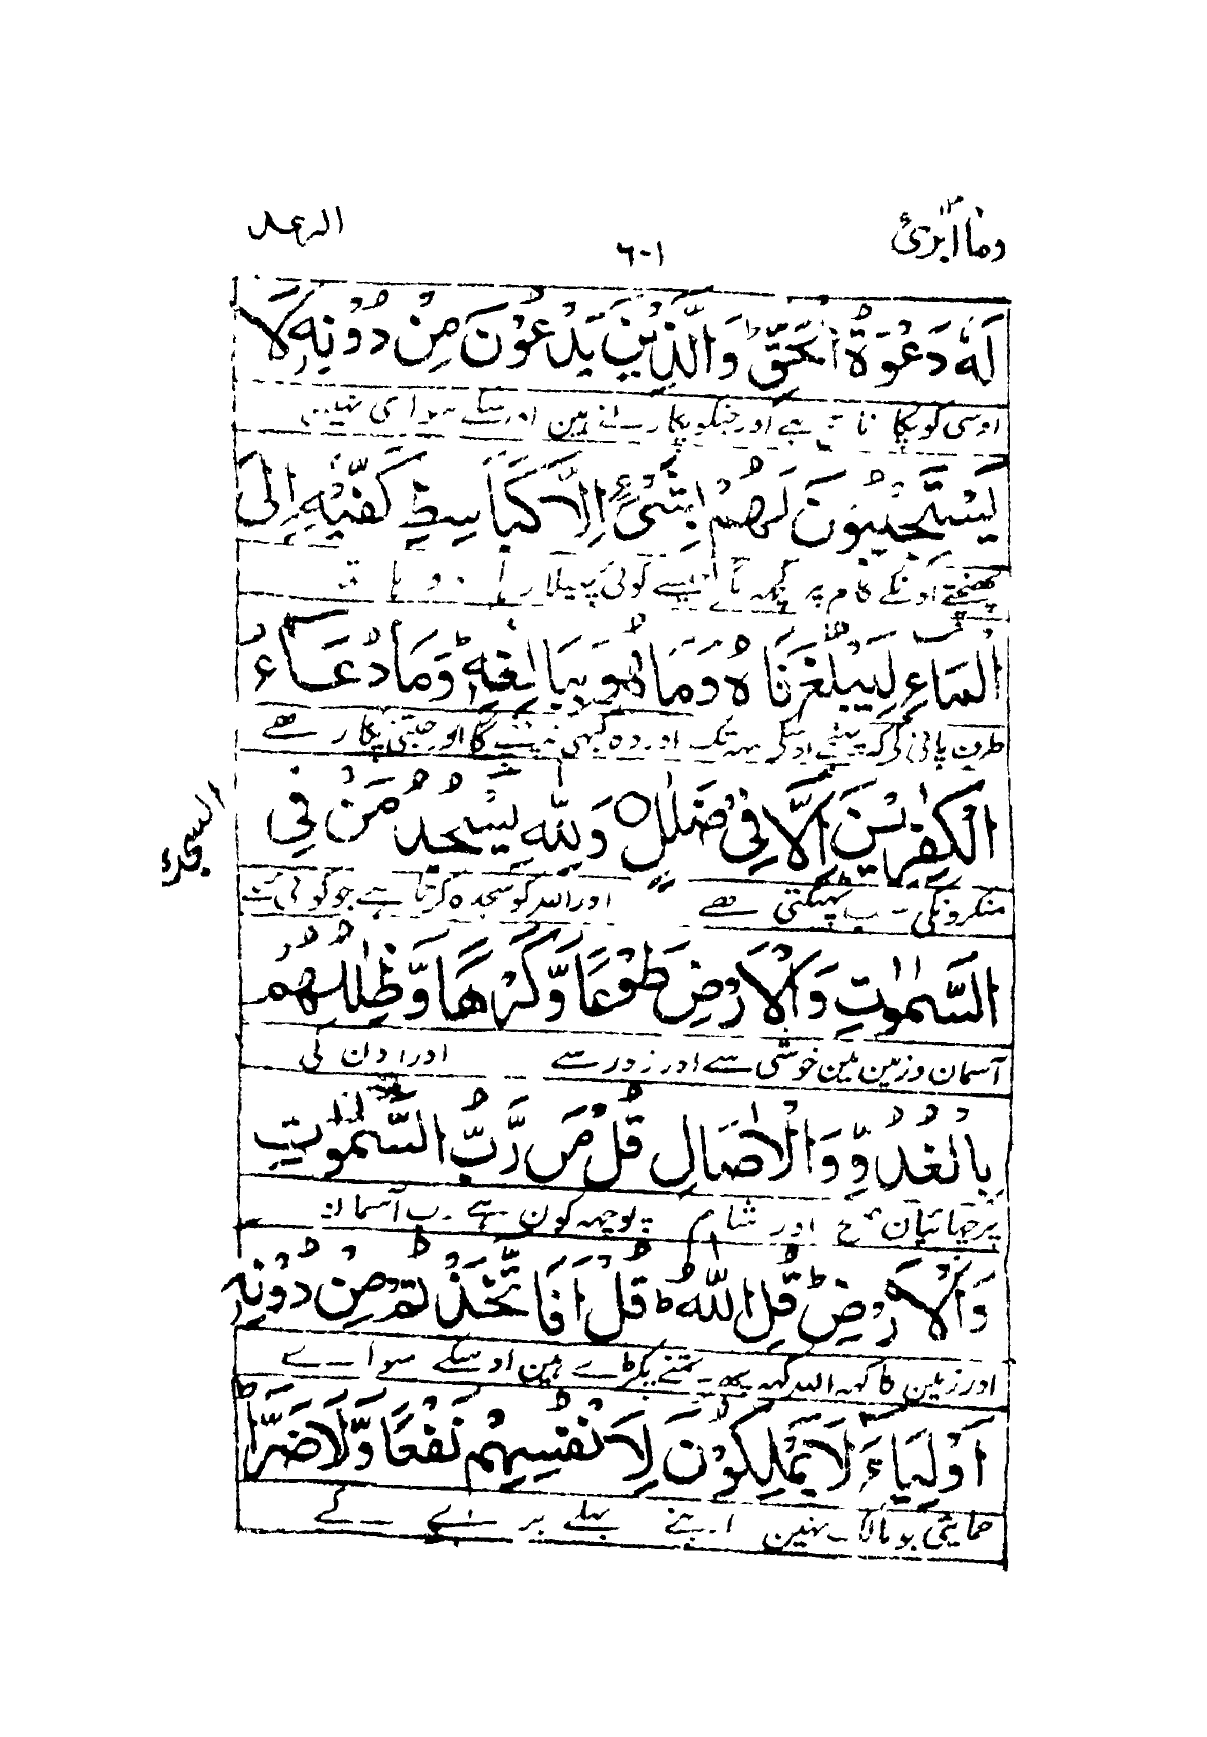 وما ابرئ ١٣
٦٠١
الرعد
لَهٗ دَعْوَةُ الْحَقِّ ؕ وَالَّذِيْنَ يَدْعُوْنَ مِنْ دُوْنِهٖ لَا
اوسی کو پکارنا ہے اور جنکو پکارتے ہین اوسکے سوا نہین
يَسْتَجِيْبُوْنَ لَهُمْ بِشَيْءٍ اِلَّا كَبَاسِطِ كَفَّيْهِ اِلَى
اونکے کام پر کچھ جیسے کوئی پھیلا رہا دو
الْمَآءِ لِيَبْلُغَ فَاهُ وَمَا هُوَ بِبَالِغِهٖ ؕ وَمَا دُعَآءُ
طرف پانی کی کہ پہنچے اوسکے منہ تک اور وہ کبھی نہ پہنچے گا اور جتنی پکار ہے
الْكٰفِرِيْنَ اِلَّا فِيْ ضَلٰلٍ ○ وَلِلّٰهِ يَسْجُدُ مَنْ فِي
السجدة
منکرونکی سب بھٹکتی ہے اور اللہ کو سجدہ کرتا ہے جو کوئی ہے
السَّمٰوٰتِ وَالْاَرْضِ طَوْعًا وَّكَرْهًا وَّظِلٰلُهُمْ
آسمان و زمین مین خوشی سے اور زور سے اور اون کی
بِالْغُدُوِّ وَالْاٰصَالِ قُلْ مَنْ رَّبُّ السَّمٰوٰتِ
پرچھائیان صبح اور شام پوچھ کون ہے رب آسمان
وَالْاَرْضِ ؕ قُلِ اللّٰهُ ؕ قُلْ اَفَاتَّخَذْتُمْ مِنْ دُوْنِهٖ
اور زمین کا کہہ اللہ کہہ پھر تمنے پکڑے ہین اوسکے سوائے
اَوْلِيَآءَ لَا يَمْلِكُوْنَ لِاَنْفُسِهِمْ نَفْعًا وَّلَا ضَرًّا ؕ
حمایتی جو مالک نہین اپنے بھلے برے کے